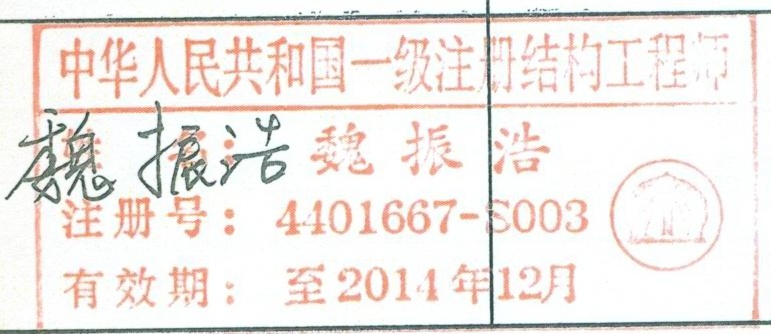 中华人民共和国一级注册结构工程师
姓名：魏振浩
魏振浩
注册号：4401667-S003
有效期：至2014年12月